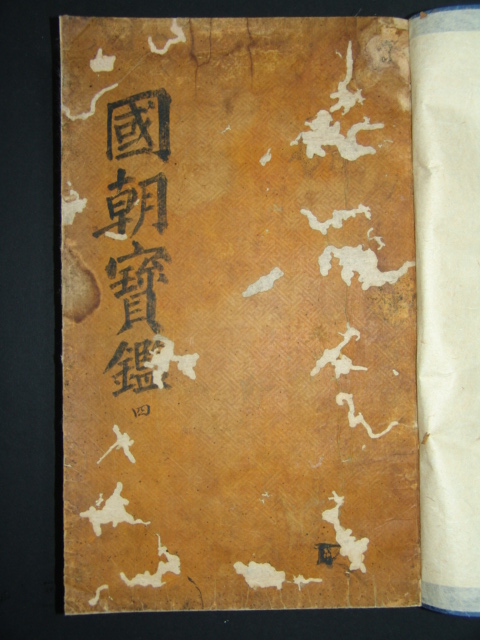 國朝寶鑑
四